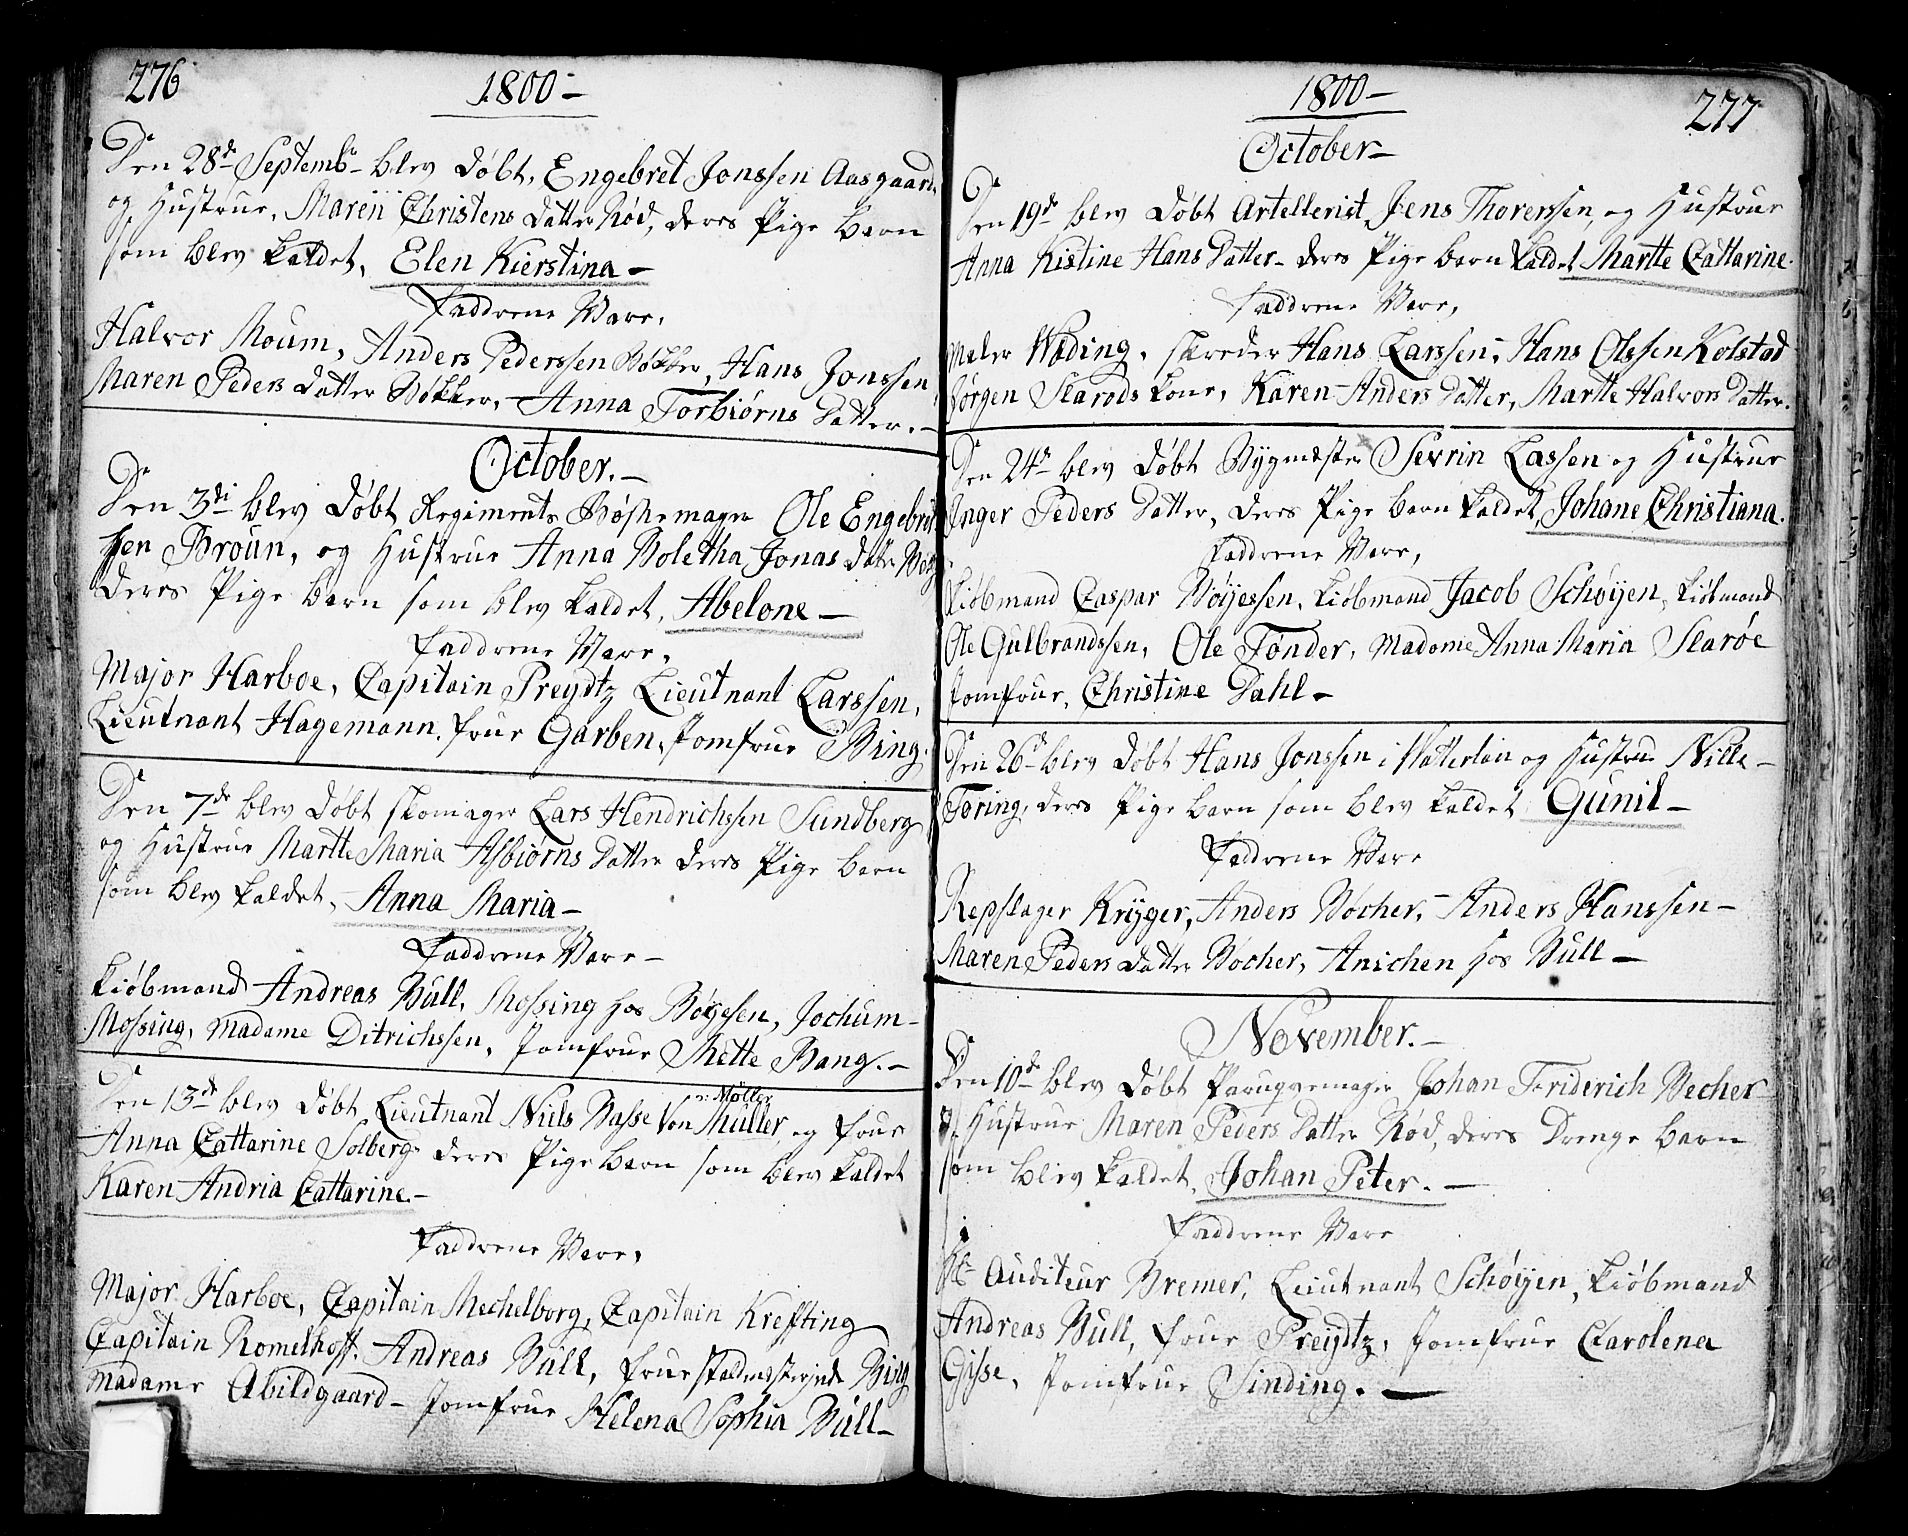 276
1800 –
Den 28de Septembr – blev Døbt, Engebret Jonssen Aasgaard,
og Hustrue, Maren Christens Datter Rød, deres Pige Barn
som blev kaldet, Elen Kierstina –
Faddrene Vare,
Halvor Moum, Anders Pederssen Bøkker, Hans Jonssen
Maren Peders Datter Bøkker, – Anna Torbiørns Datter. –
October. –
Den 3di blev Døbt Regiments Bøssemager Ole Engebret
ssen Broun, og Hustrue Anna Boletha Jonas Datter
Deres Pige Barn som blev kaldet, Abelone –
Faddrene Vare,
Major Harboe, Capitain Preydtz Lieutnant Larssen,
Lieutnant Hagemann, frue Garben, Jomfrue Bing.
Den 7de blev Døbt Skomager Lars Hendrichssen Sundberg
og Hustrue Marthe Maria Asbiørns Datter deres Pige Barn
som blev kaldet, Anna Maria –
Faddrene Vare –
Kiøbmand Andreas Bull, Mossing hos Bøyesen, Jochum –
Mossing, Madame Ditrichssen, Jomfrue Mette Bang. –
Den 13de blev Døbt, Lieutnant Niels Basse Von Müller, og frue
: Møller
Anna Cattarine Solberg deres Pige Barn som blev kaldet
Karen Andria Cattarine. –
Faddrene Vare,
Major Harboe, Capitain Mechelborg, Capitain Krefting
Capitain Romelhoff, Andreas Bull, frue Bing
Madame Abildgaard – Jomfrue Helena Sophia Bull –
277
1800 –
October –
Den 19de blev Døbt Artellerist, Jens Thorerssen, og Hustrue
Anna Kistine Hans Datter – deres Pige Barn kaldet Martte Cattarine.
Faddrene Vare,
Maler Wæding, skreder Hans Larssen, Hans Olssen Kolstad
Jørgen Skarods kone, Karen Anders Datter, Martte Halvors Datter.
Den 24de blev Døbt Bygmæster Sevrin Lassen og Hustrue
Inger Peders Datter, deres Pige Barn kaldet, Johane Christiana.
Faddrene Vare,
Kiøbmand Caspar Bøijessen, Kiøbmand Jacob Schøijen, Kiøbmand
Ole Gulbrandssen, Ole Tønder, Madame Anna Maria Skarøe
Jomfrue, Christine Dahl –
Den 26de blev Døbt Hans Jonssen i Vatterløn og Hustrue Nille –
Toring, deres Pige Barn som blev kaldet Gunil –
Faddrene Vare
Repslager Kryger, Anders Bøcher, – Anders Hanssen –
Maren Peders Datter Bøcher, Anichen hos Bull –
November. –
Den 10de blev Døbt Paruqvemager Johan Friderich Becher
og Hustrue Maren Peders Datter Rød, deres Drenge Barn
som blev kaldet, Johan Peter. –
Faddrene Vare
Hr Auditeur Bremer, Lieutnant Schøijen, Kiøbmand
Andreas Bull, frue Preydtz, Jomfrue Carolena
Gisse, Jomfrue Sinding. –